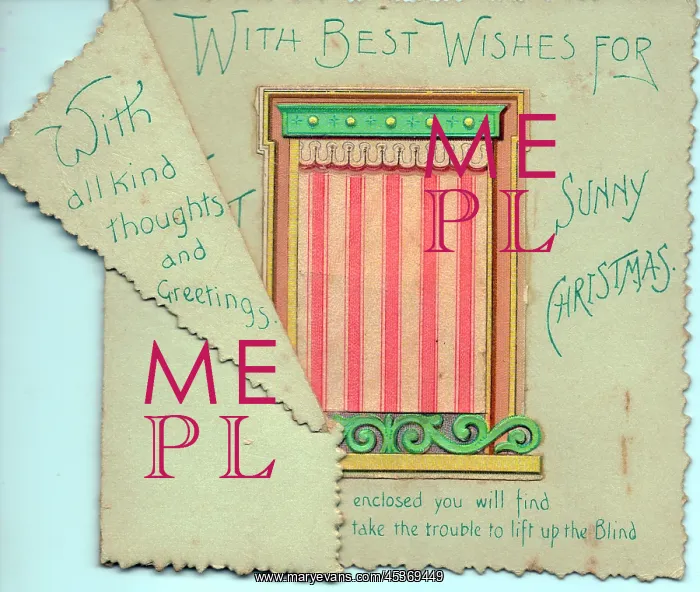 With Best Wishes for
With
all kind
thoughts
and
Greetings.
T
Sunny
Christmas.
enclosed you will find
take the trouble to lift up the Blind
ME
PL
ME
PL
www.maryevans.com/45369449